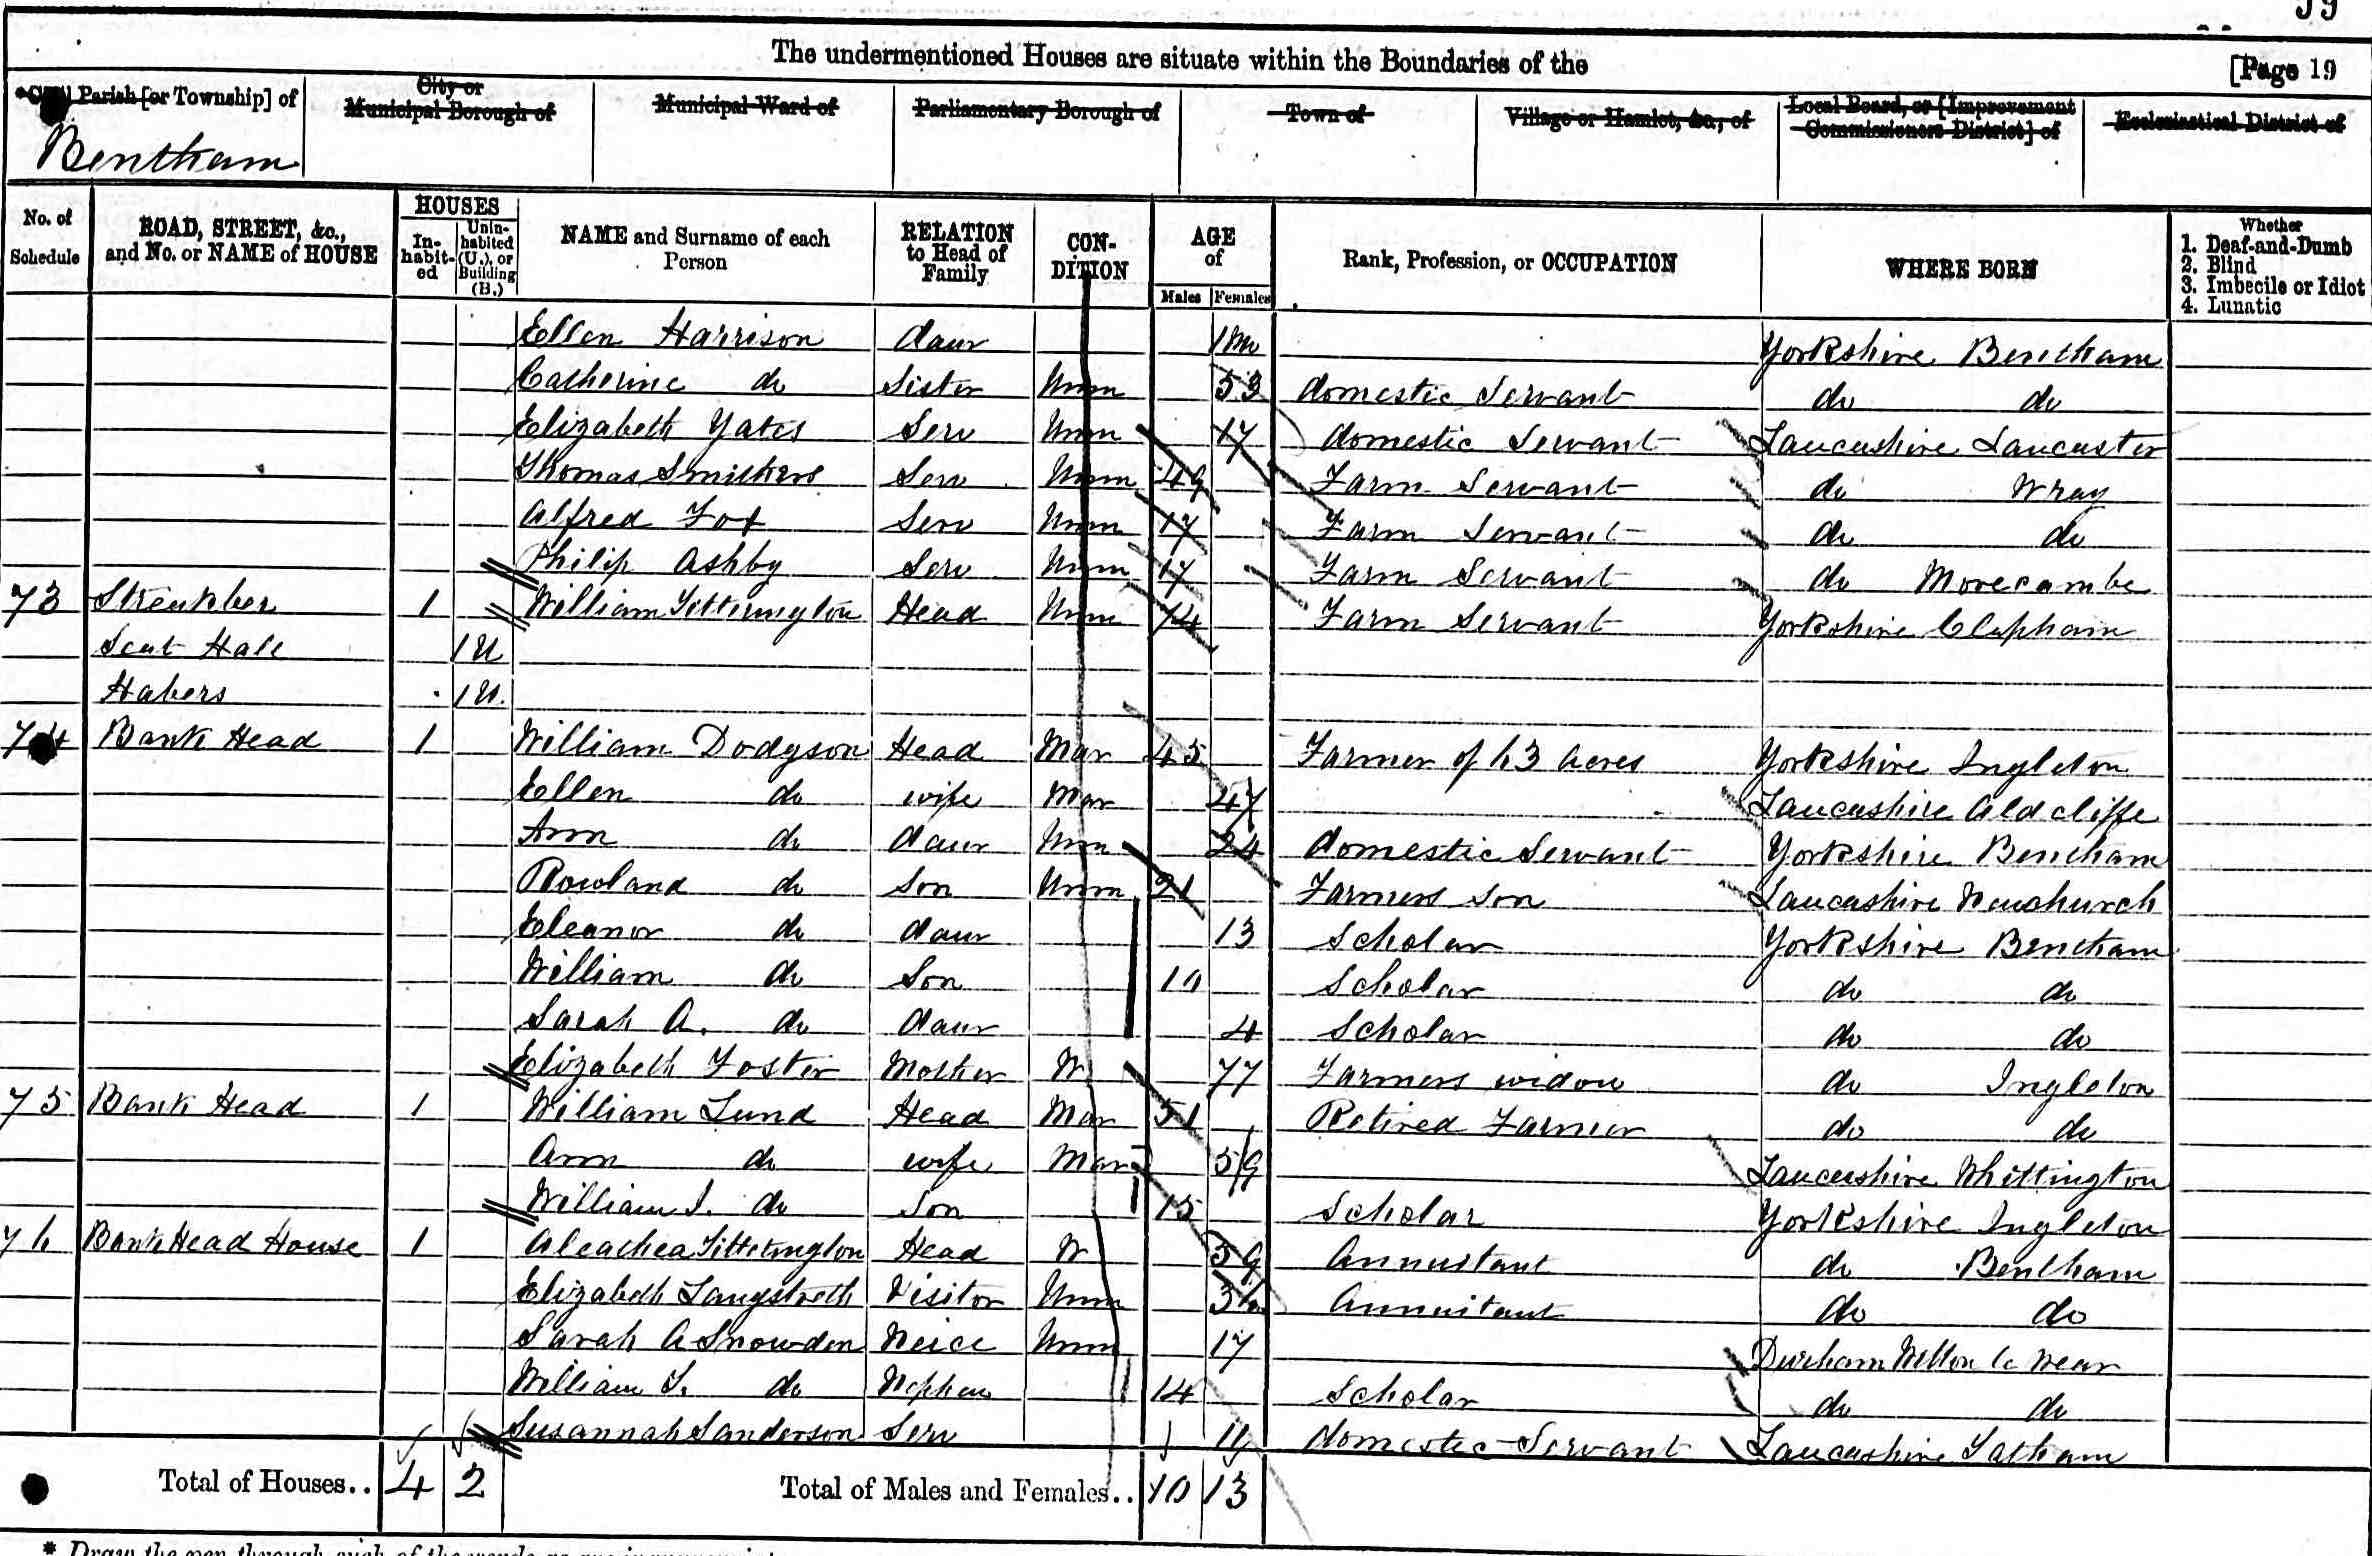 The undermentioned Houses are situate within the Boundaries of the
[Page 19
Parish [or Township] of
City or Municipal Borough of
Municipal Ward of
Parliamentary Borough of
Town of
Village or Hamlet, &c., of
Local Board, or [Improvement Commissioners District] of
Ecclesiastical District of
Bentham
No. of Schedule
ROAD, STREET, &c., and No. or NAME of HOUSE
HOUSES
In-habit-ed
Unin-habited (U.), or Building (B.)
NAME and Surname of each Person
RELATION to Head of Family
CON-DITION
AGE of
Males
Females
Rank, Profession, or OCCUPATION
WHERE BORN
Whether
1. Deaf-and-Dumb
2. Blind
3. Imbecile or Idiot
4. Lunatic
Ellen Harrison daur 1m Yorkshire Bentham
Catherine do Sister Unm 53 domestic Servant do do
Elizabeth Yates Serv Unm 17 domestic Servant Lancashire Lancaster
Thomas Smithers Serv Unm 49 Farm Servant do Wray
Alfred Fox Serv Unm 17 Farm Servant do do
Philip Ashby Serv Unm 17 Farm Servant do Morecambe
73 1 William Titterington Head Unm 74 Farm Servant Yorkshire Clapham
Scut Hall 1 U
Habers 1 U.
74 Bank Head 1 William Dodgson Head Mar 45 Farmer of 63 acres Yorkshire Ingleton
Ellen do wife Mar 47 Lancashire Aldcliffe
Ann do daur Unm 24 domestic Servant Yorkshire Bentham
Rowland do Son Unm 21 Farmers Son Lancashire Newchurch
Eleanor do daur 13 Scholar Yorkshire Bentham
William do Son 10 Scholar do do
Sarah A. do daur 4 Scholar do do
Elizabeth Foster Mother W 77 Farmers widow do Ingleton
75 Bank Head 1 William Lund Head Mar 51 Retired Farmer do do
Ann do wife Mar 59 Lancashire Whittington
William J. do Son 15 Scholar Yorkshire Ingleton
76 Bank Head House 1 Titterington Head W 59 Annuitant do Bentham
Elizabeth Langstroth Visitor Unm 36 Annuitant do do
Sarah A Snowden Neice Unm 17 Durham Witton le Wear
William T. do Nephew 14 Scholar do do
Susannah Sanderson Serv domestic Servant Lancashire Tatham
Total of Houses.. 4 2
Total of Males and Females.. 10 13